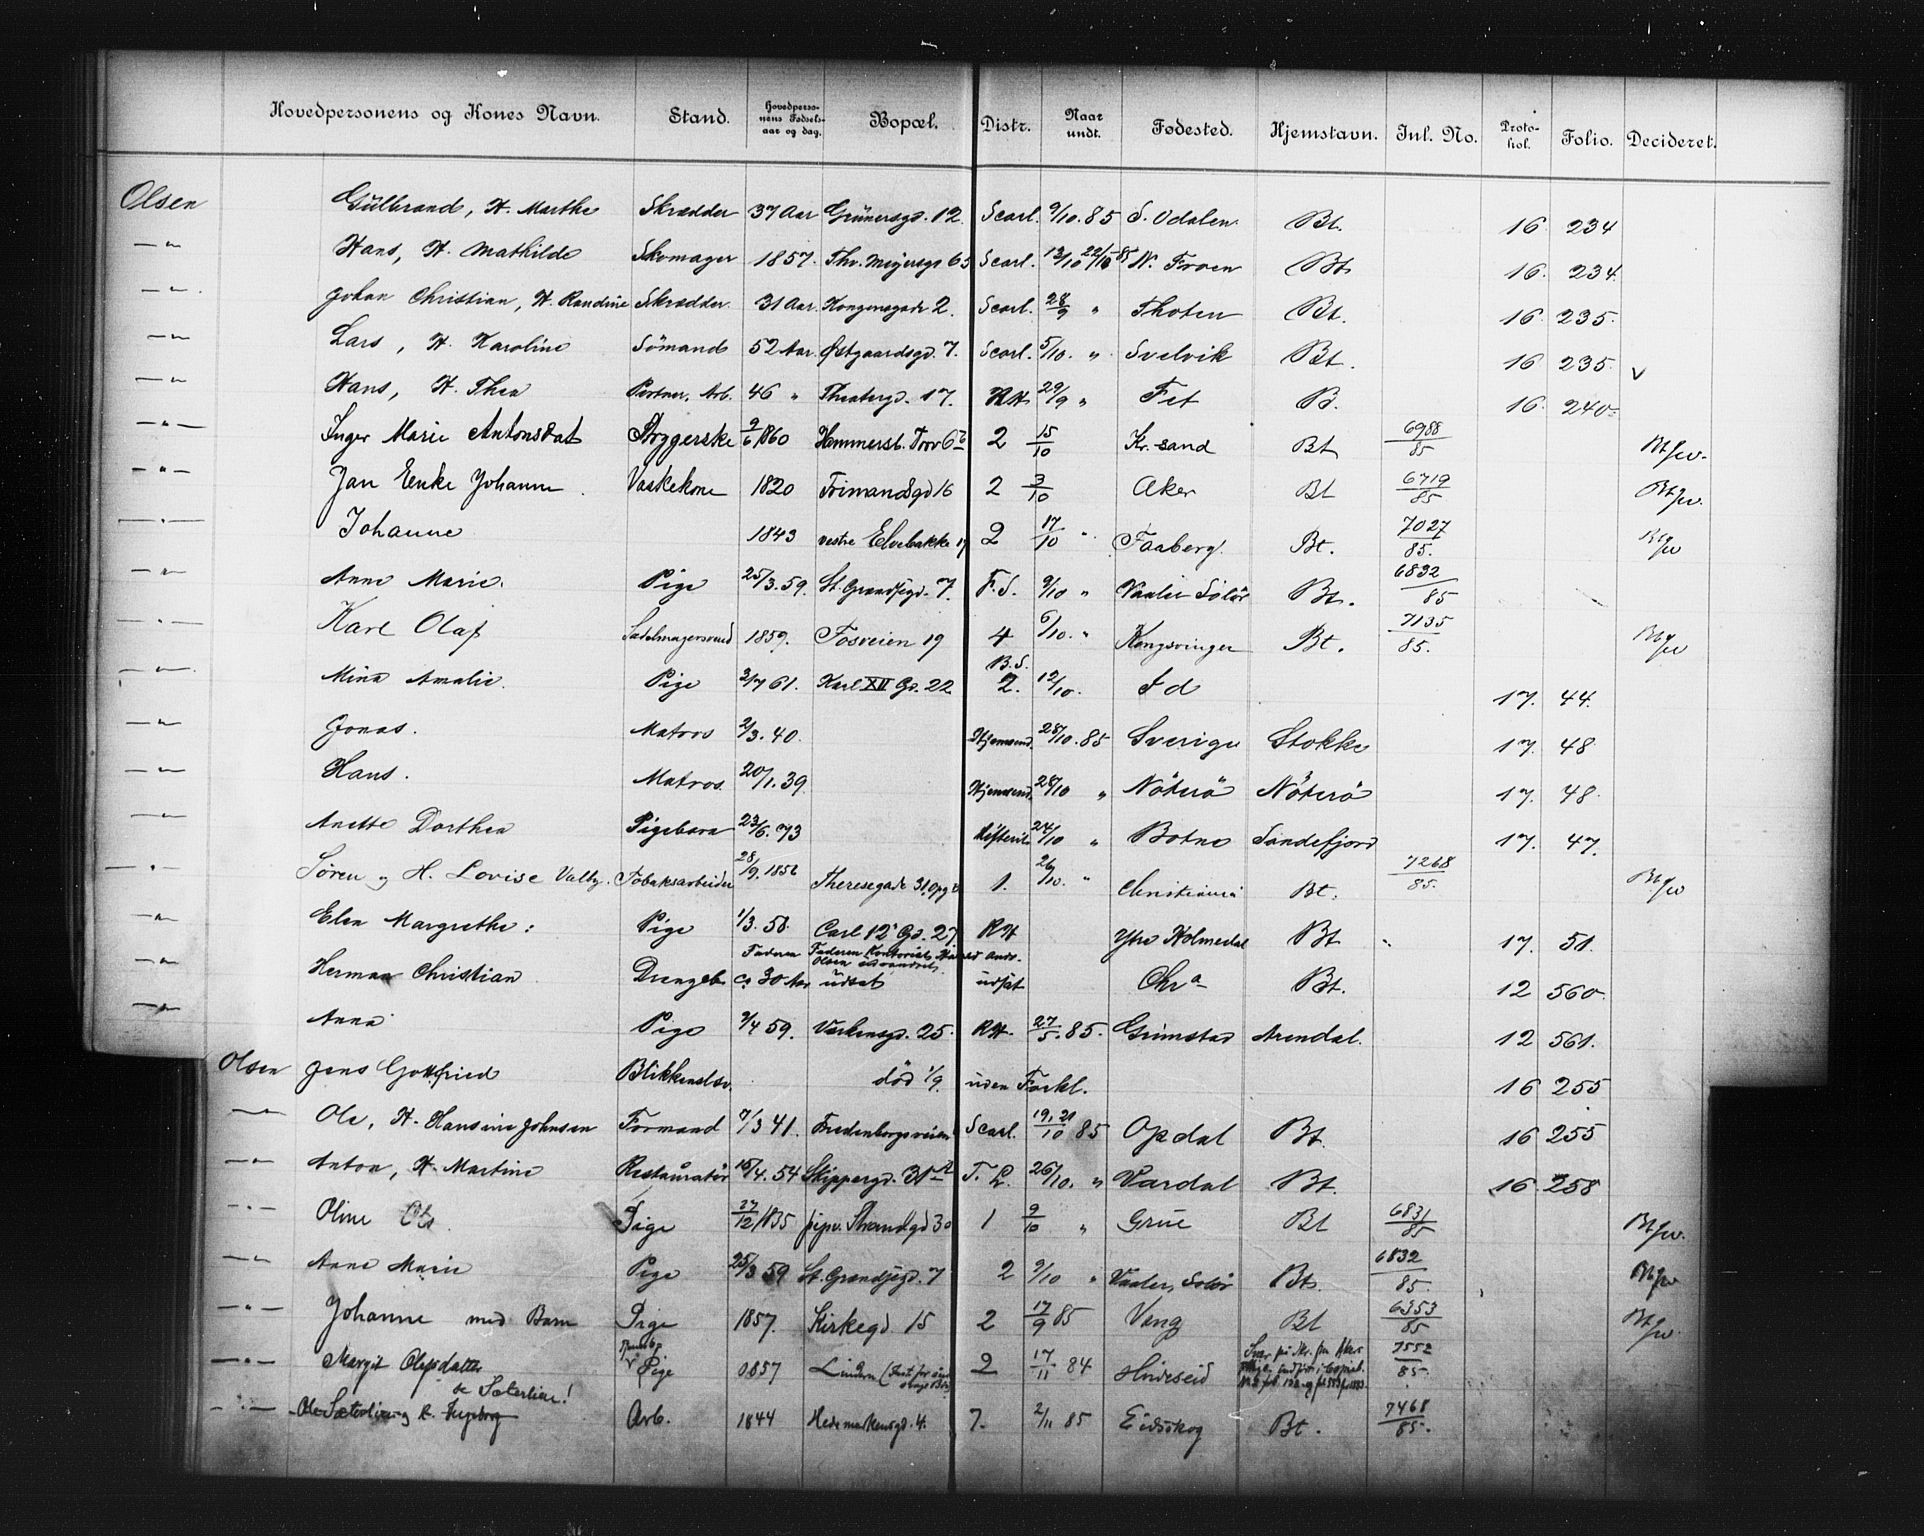 Hovedpersonens og Kones Navn. Stand. Hovedperso- nens Fødsels- aar og dag. Bopæl. Distr. Naar undt. Fødested. Hjemstavn. Inl. No. Proto- kol. Folio. Decideret.
Olsen Gulbrand, H. Marthe Skrædder 37 Aar Grünersgd. 12. Scarl. 9/10. 85 S. Odalen Bt. 16 234
—"— Hans, H. Mathilde Skomager 1857. Thv. Meyersgd 65 Scarl. 13/10 22/10 85 N. Froen Bt 16. 234.
—"— Johan Christian, H. Randine Skrædder. 31 Aar. Kongensgade 2. Scarl. 28/9 " Thoten Bt. 16. 235.
—"— Lars, H. Karoline Sömand 52 Aar. Østgaardsgd. 7. Scarl. 5/10. " Svelvik Bt. 16 235. v
—"— Hans, H. Thea Portner, Arb. 46 " Theatergd. 17. RH 29/9 " Fet B. 16. 240.
—"— Inger Marie Antonsdat Bryggerske 2/6 1860 Hammersb. Torv 6b 2 15/10 Kr.sand Bt 6988/85 Bt/w.
—"— Jan Enke Johanne Vaskekone 1820 Frimandsgd 16 2 3/10 Aker Bt 6719/85 Bt/w.
—"— Johanne 1843 vestre Elvebakke 17 2 17/10 " Faaberg. Bt. 7027/85. Bt/w
—"— Anne Marie. Pige 25/3. 59. St. Grændsegd. 7. F.S. 9/10 " Vaaler Solör Bt. 6832/85
—"— Karl Olaf Sadelmagersvend 1859. Fosveien 19 4 6/10. " Kongsvinger Bt. 7135/85. Bt/w
—"— Mina Amalie. Pige 2/7 61. Karl XII Gd. 22 B.S. 2. 12/10. Id 17. 44.
—"— Jonas. Matros 2/3. 40. Hjemsend. 28/10. 85 Sverige Stokke 17. 48
—"— Hans. Matros 20/1. 39. Hjemsend. 28/10 " Nöterö Nöterö 17. 48.
—"— Anette Dorthea Pigebarn 23/6. 73 24/10 " Botne Sandefjord 17. 47.
—"— Søren og H. Lovise Valby. Tobaksarbeider 28/9. 1856 Theresegade 31 Opg b 1. 26/10. " Christiania Bt. 7268/85. Bt/w
—"— Elen Margrethe: Pige 1/3. 58. Carl 12' Gd. 27. RH Ytre Holmedal Bt " 17. 51.
—"— Herman Christian Drengeb. Faderen ca 30 Aar Faderen Kontorist Olsen udsat udsat Chra Bt. 12 560.
—"— Anna Pige 9/4 59. Verkensgd. 25. RH. 27/5. 85. Grimstad Arendal. 12 561.
Olsen Jens Gottfried Blikkensl.sv. död 1/9. uden Forkl. 16 255
—"— Ole, H. Hansine Johnsen Formand 7/3 41. Fredenborgsveien Scarl. 19. 21/10 85 Opdal Bt. 16 255
—"— Anton, H. Martine Restauratör 15/4. 54 Skippergd. 31 T.L. 26/10. " Vardal Bt. 16. 258
—"— Oline Ols. Pige 27/12 1835 pipv. Strandgd 30 1 9/10 " Grue Bt 6831/85 Bt/w.
—"— Anne Marie Pige 25/3 59 St. Grændsegd. 7 2 9/10 " Vaaler, Solör Bt. 6832/85. Bt/w
—"— Johanne med Barn Pige 1857. Kirkegd 15 2 17/9 85 Vang Bt 6353/85 Bt/w.
—"— Margit Olsdatter Pige 1857 Lindern 2 17/11 84 Hvideseid 7552/85.
se Sæterlien!
—"— Ole Sæterlien og K. Ingeborg Arb. 1844 Hedemarkensgd. 4. 7. 2/11 85 Eidskog Bt. 7468/85.